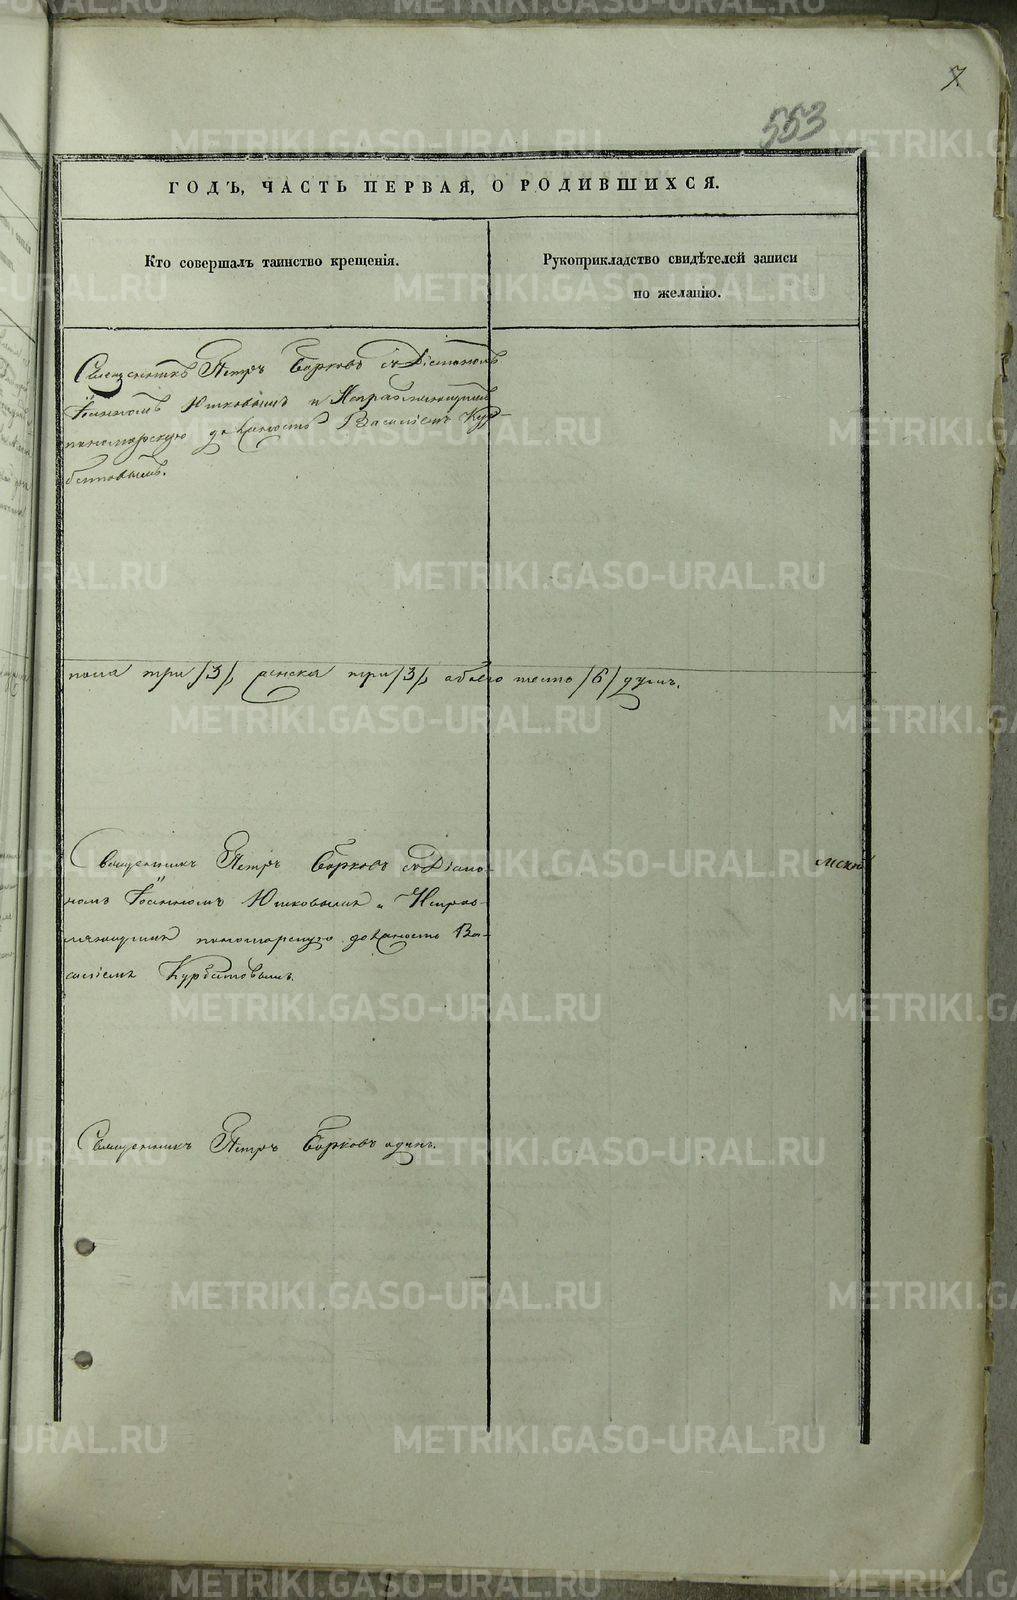 7.
553
ГОДЪ, ЧАСТЬ ПЕРВАЯ, О РОДИВШИХСЯ.
Кто совершалъ таинство крещенія.
Рукоприкладство свидѣтелей записи
по желанію.
Священникъ Петръ Борковъ съ Діакономъ
Іоанномъ Юшковымъ и Исправляющимъ
пономарскую должность Василіемъ Кур-
батовымъ.
пола три /3/, женска три /3/, обоего шесть /6/ душъ.
Священникъ Петръ Борковъ съ Діако-
номъ Іоанномъ Юшковымъ и Исправ-
ляющимъ пономарскую должность Ва-
силіемъ Курбатовымъ.
Священникъ Петръ Борковъ одинъ.
METRIKI.GASO-URAL.RU